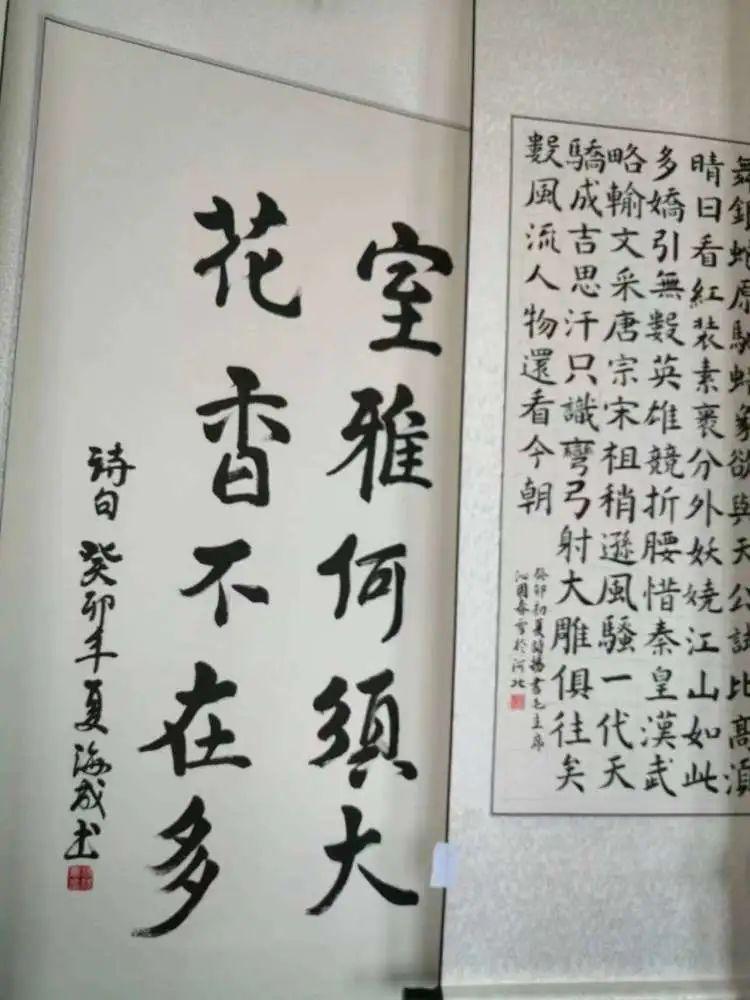 室雅何須大
花香不在多
詩句 癸卯年夏海成书
舞銀蛇原馳蠟象欲與天公試比高須
晴日看紅装素裹分外妖嬈江山如此
多嬌引無數英雄競折腰惜秦皇漢武
略輸文采唐宗宋祖稍遜風騷一代天
驕成吉思汗只識彎弓射大雕俱往矣
數風流人物還看今朝
癸卯初夏 書毛主席
沁園春雪於河北